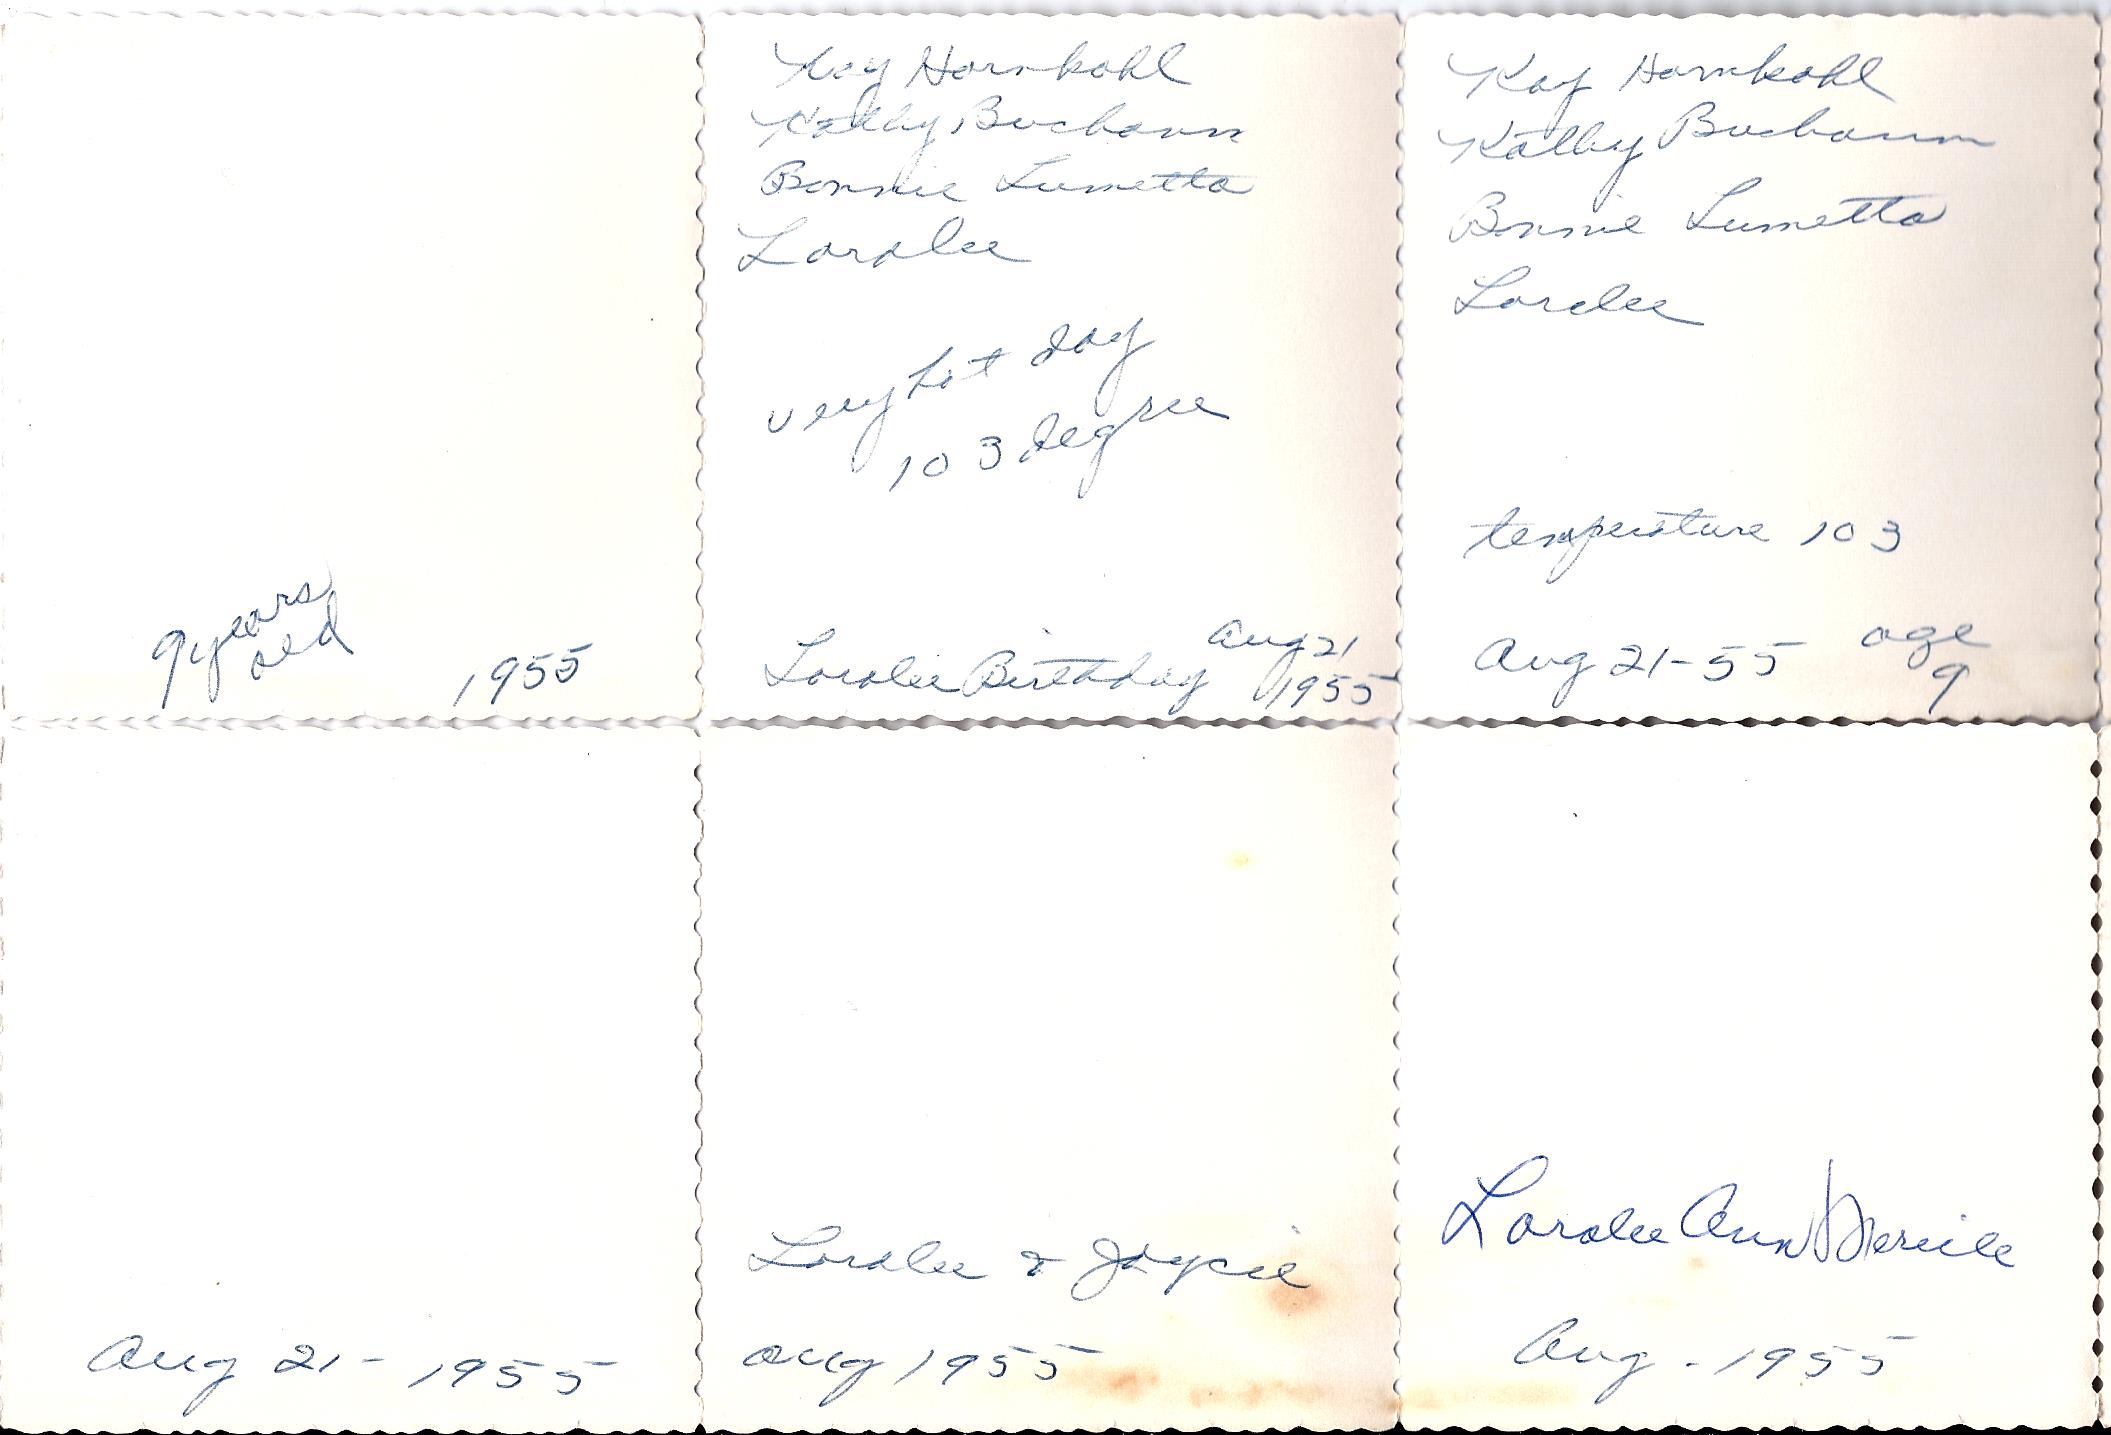 9 years
old
1955
Kay Hornkohl
Kathy Buchann
Bonnie Lumetta
Loralee
very hot day
103 degree
Loralee Birthday Aug 21
1955
Kay Hornkohl
Kathy Buchaunn
Bonnie Lumetta
Loralee
temperature 103
Aug 21-55 age
9
Aug 21- 1955
Loralee & Joycie
aug 1955
Loralee Ann
Aug - 1955